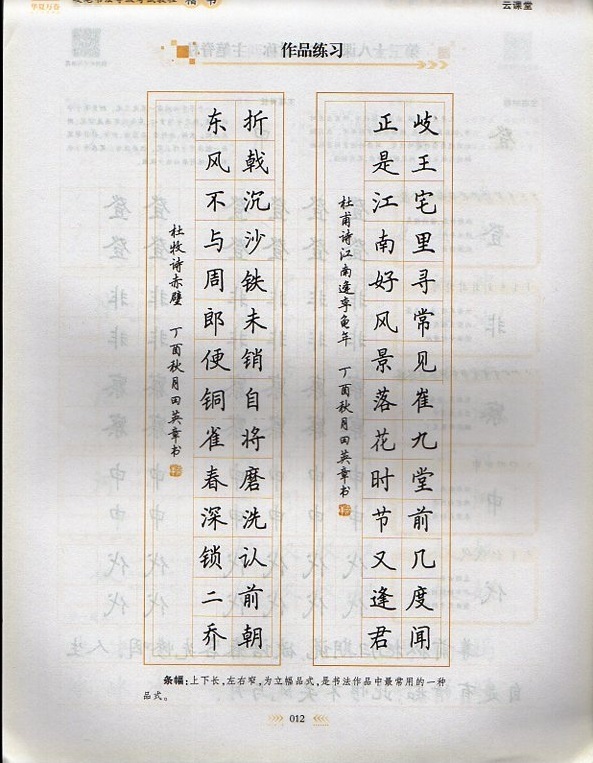 华夏万卷
楷书
云课堂
作品练习
岐王宅里寻常见崔九堂前几度闻
正是江南好风景落花时节又逢君
杜甫诗江南逢李龟年 丁酉秋月田英章书
折戟沉沙铁未销自将磨洗认前朝
东风不与周郎便铜雀春深锁二乔
杜牧诗赤壁 丁酉秋月田英章书
条幅：上下长，左右窄，为立幅品式，是书法作品中最常用的一种
品式。
012